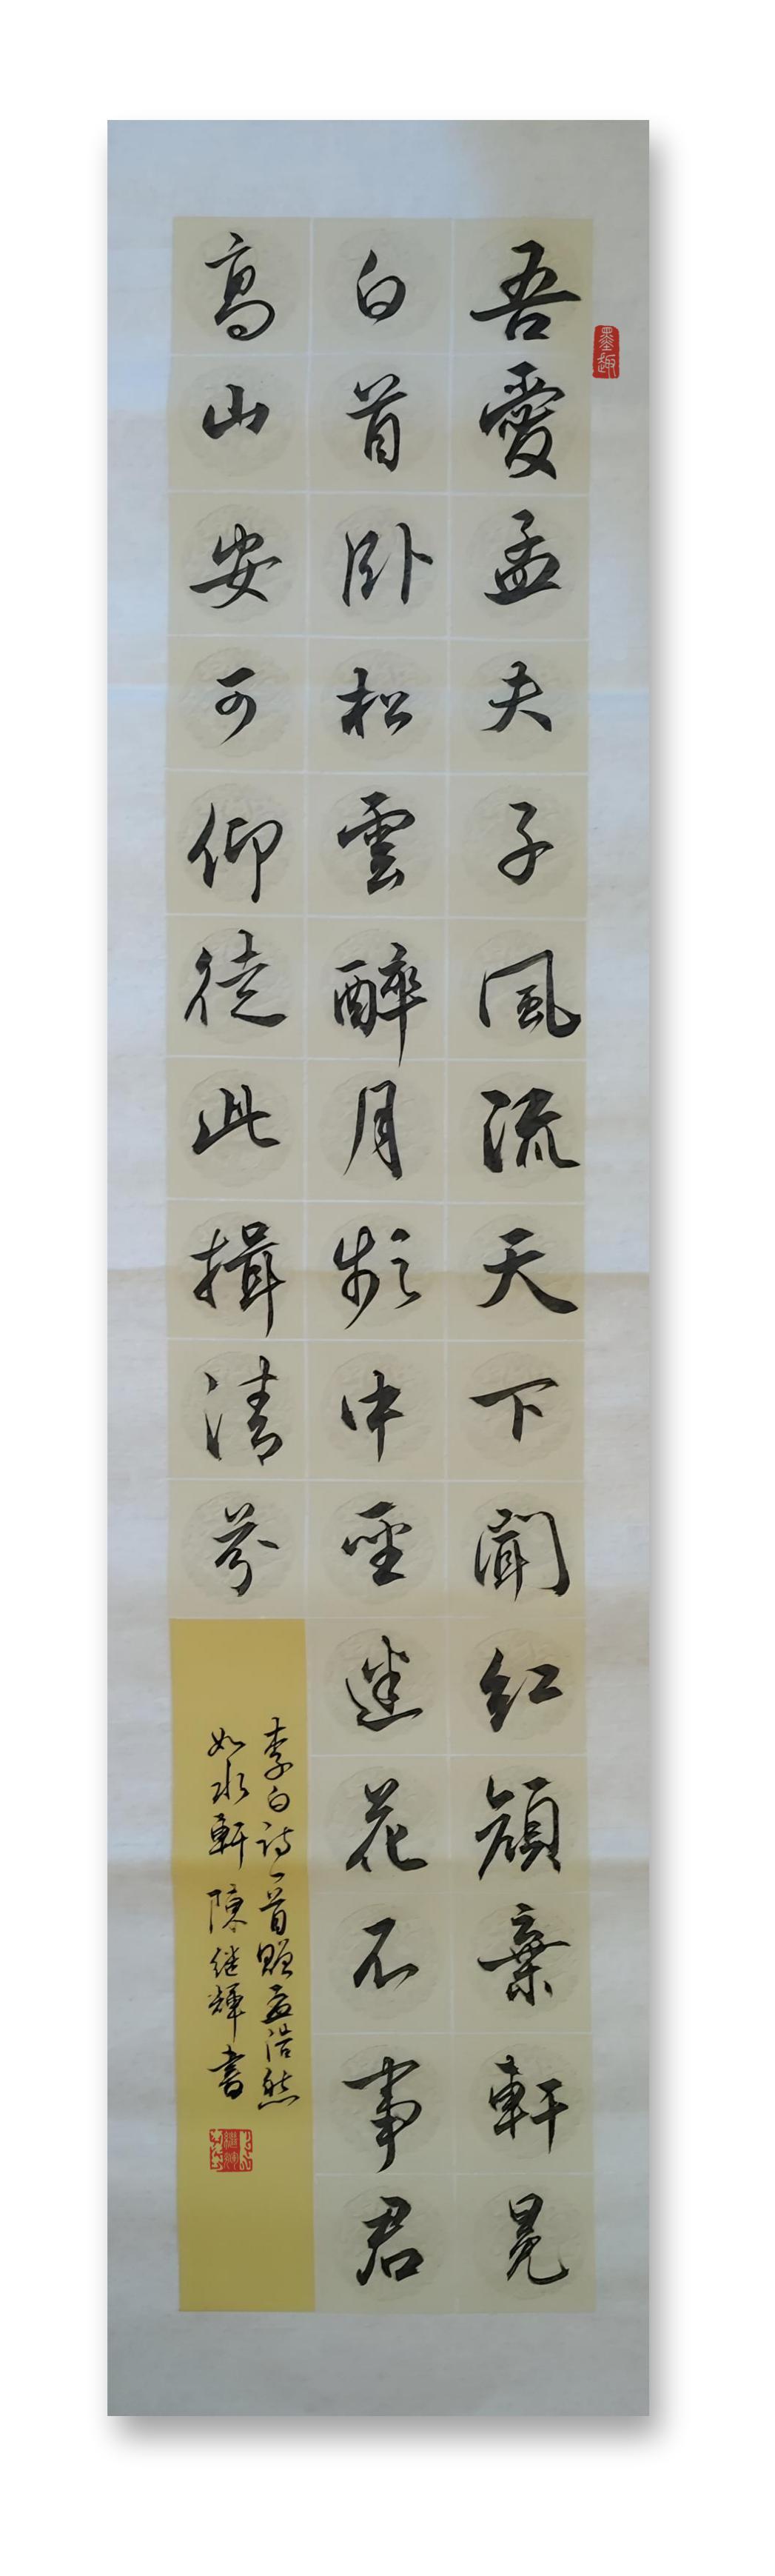 墨趣
吾愛孟夫子風流天下聞紅顔棄軒冕
白首卧松雲醉月頻中聖迷花不事君
高山安可仰徒此揖清芬
李白詩一首贈孟浩然
如水軒 陳继輝書